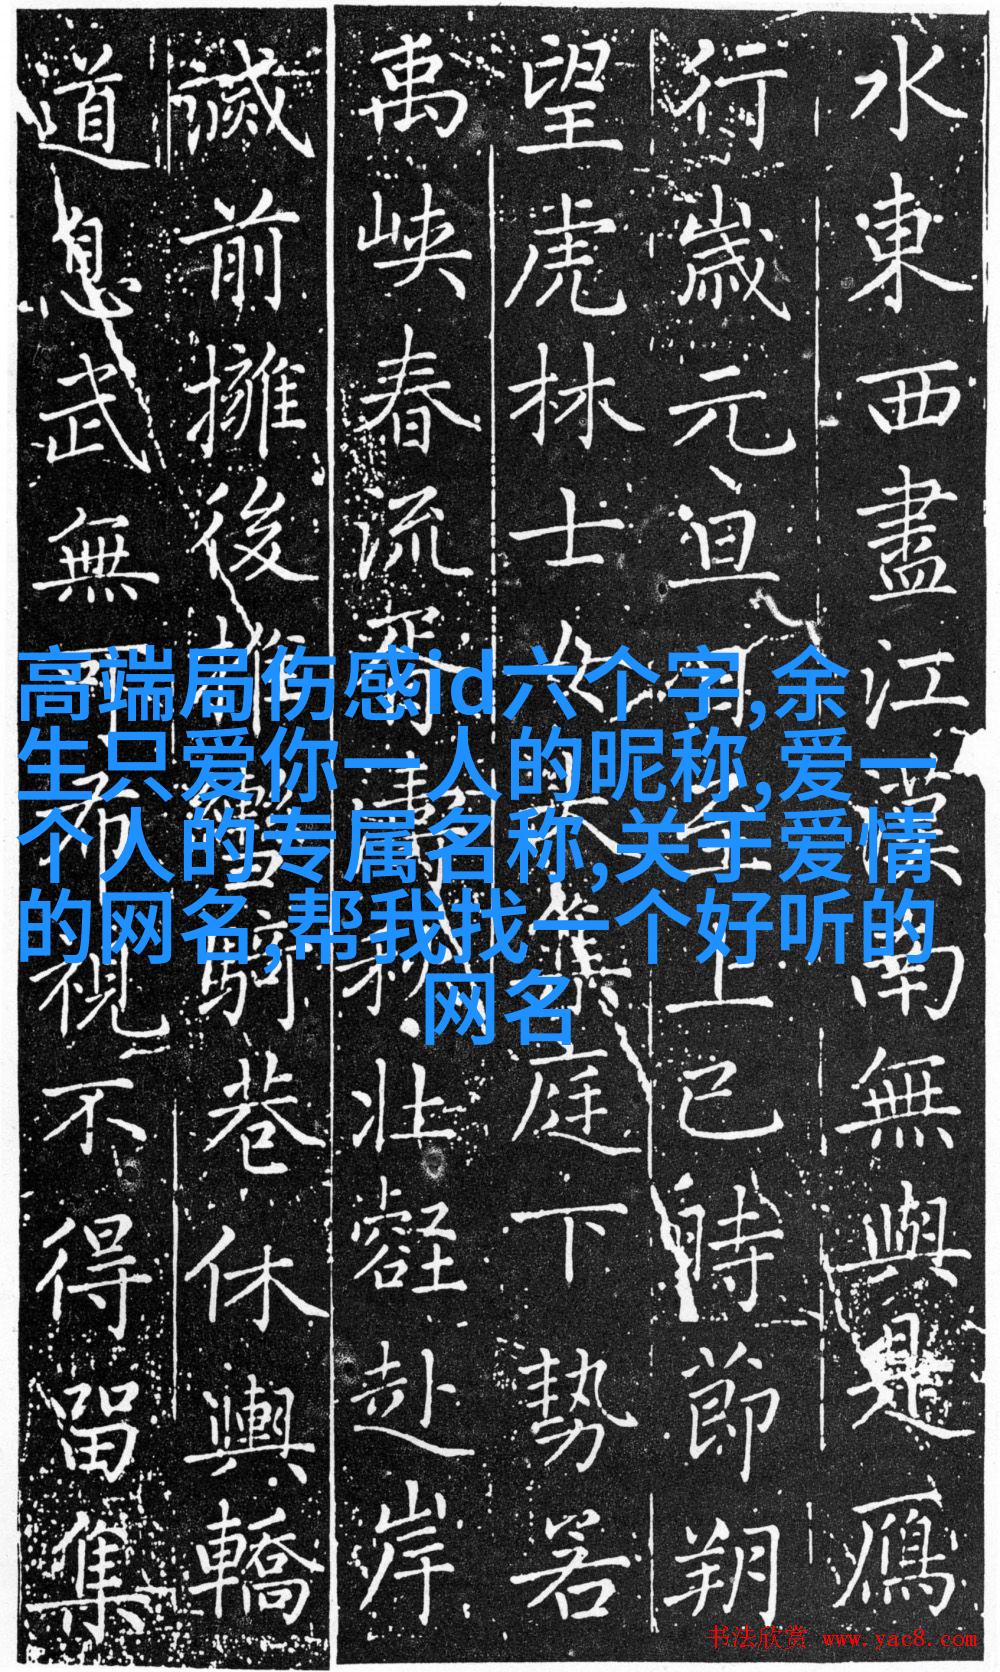 水東西盡江漢南無與是鴈
行歲元旦至上巳時節朔
望虎林士女集庭下勢若
禹峽春流胥濤秋壯壑赴岸
滅前擁後巷休輿轎
道息武無視不得留集
高端局伤感id六个字,余
生只爱你一人的昵称,爱一
个人的专属名称,关于爱情
的网名,帮我找一个好听的
网名
书法欣赏 www.yac8.com